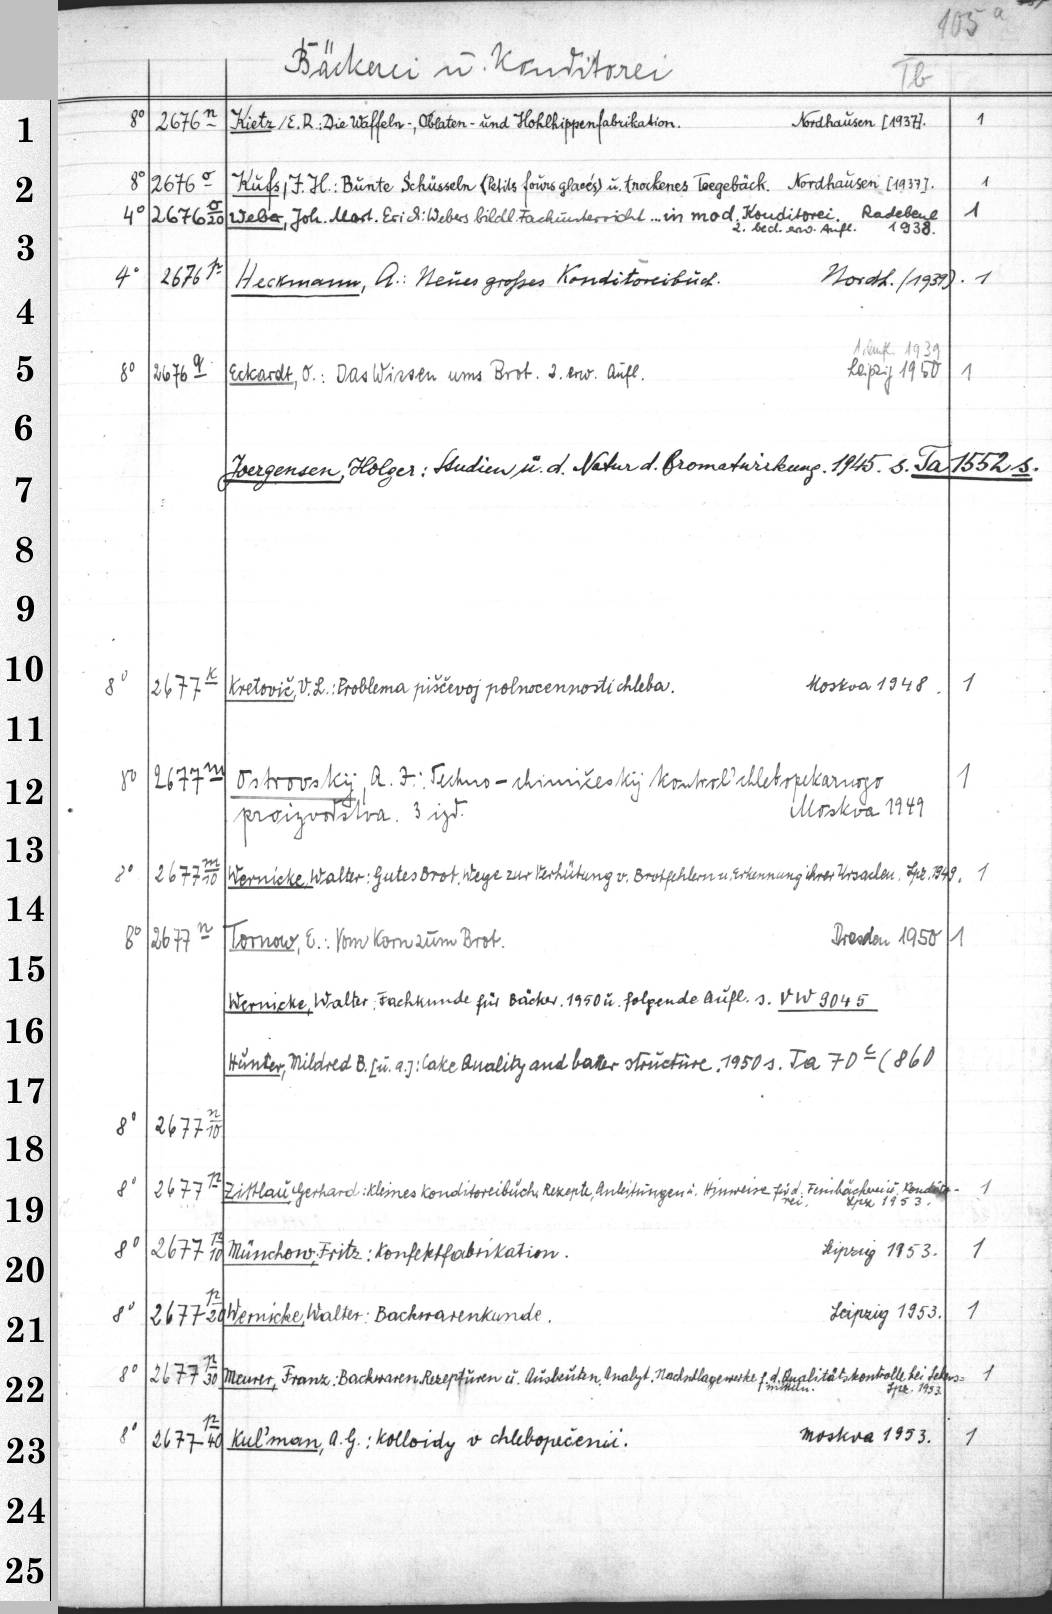 105 a
Bäckerei u. Konditorei
Tb
1 8° 2676 n Kietz, E. R.: Die Waffeln-, Oblaten- und Hohlhippenfabrikation. Nordhausen [1937]. 1
2 8° 2676 o Kufs, F. H.: Bunte Schüsseln (Petits fours glacés) u. trockenes Teegebäck. Nordhausen [1937]. 1
4° 2676 o/20 Weber, Joh. Mart. Erich: Webers bildl. Fachunterricht ... in mod. Konditorei. Radebeul 1
3 2. bed. erw. Aufl. 1938.
4° 2676 p Heckmann, A.: Neues großes Konditoreibuch. Nordh. (1939). 1
4
1. Aufl. 1939
5 8° 2676 q Eckardt, O.: Das Wissen ums Brot. 2. erw. Aufl. Leipzig 1950 1
6
Joergensen, Holger: Studien ü. d. Natur d. Bromatwirkung. 1945. s. Ta 1552 s.
7
8
9
10 8° 2677 k Kretovič, V. L.: Problema piščevoj polnocennosti chleba. Moskva 1948. 1
11
12 8° 2677 m Ostrovskij, A. F.: Techno-chimičeskij kontrol' chlebopekarnogo 1
proizvodstva. 3 izd. Moskva 1949
13 8° 2677 m/10 Wernicke, Walter: Gutes Brot. Wege zur Verhütung v. Brotfehlern u. Erkennung ihrer Ursachen. Lpz. 1949. 1
14 8° 2677 n Tornow, E.: Vom Korn zum Brot. Dresden 1950 1
15
Wernicke, Walter: Fachkunde für Bäcker. 1950 u. folgende Aufl. s. VW 9045
16
Hunter, Mildred B. [u. a.]: Cake Quality and batter structure. 1950 s. Ta 70 c (860
17
8° 2677 n/10
18
19 8° 2677 p Zittlau, Gerhard: Kleines Konditoreibuch. Rezepte, Anleitungen u. Hinweise für d. Feinbäckerei u. Kondito- 1
rei. Lpz. 1953.
8° 2677 p/10 Münchow, Fritz: Konfektfabrikation. Leipzig 1953. 1
20
8° 2677 p/20 Wernicke, Walter: Backwarenkunde. Leipzig 1953. 1
21
22 8° 2677 p/30 Meurer, Franz: Backwaren Rezepturen u. Ausbeuten. Analyt. Nachschlagewerke f. d. Qualitätskontrolle bei Lebens= 1
mitteln. Lpz. 1953
23 8° 2677 p/40 Kul'man, A. G.: Kolloidy v chlebopečenii. Moskva 1953. 1
24
25